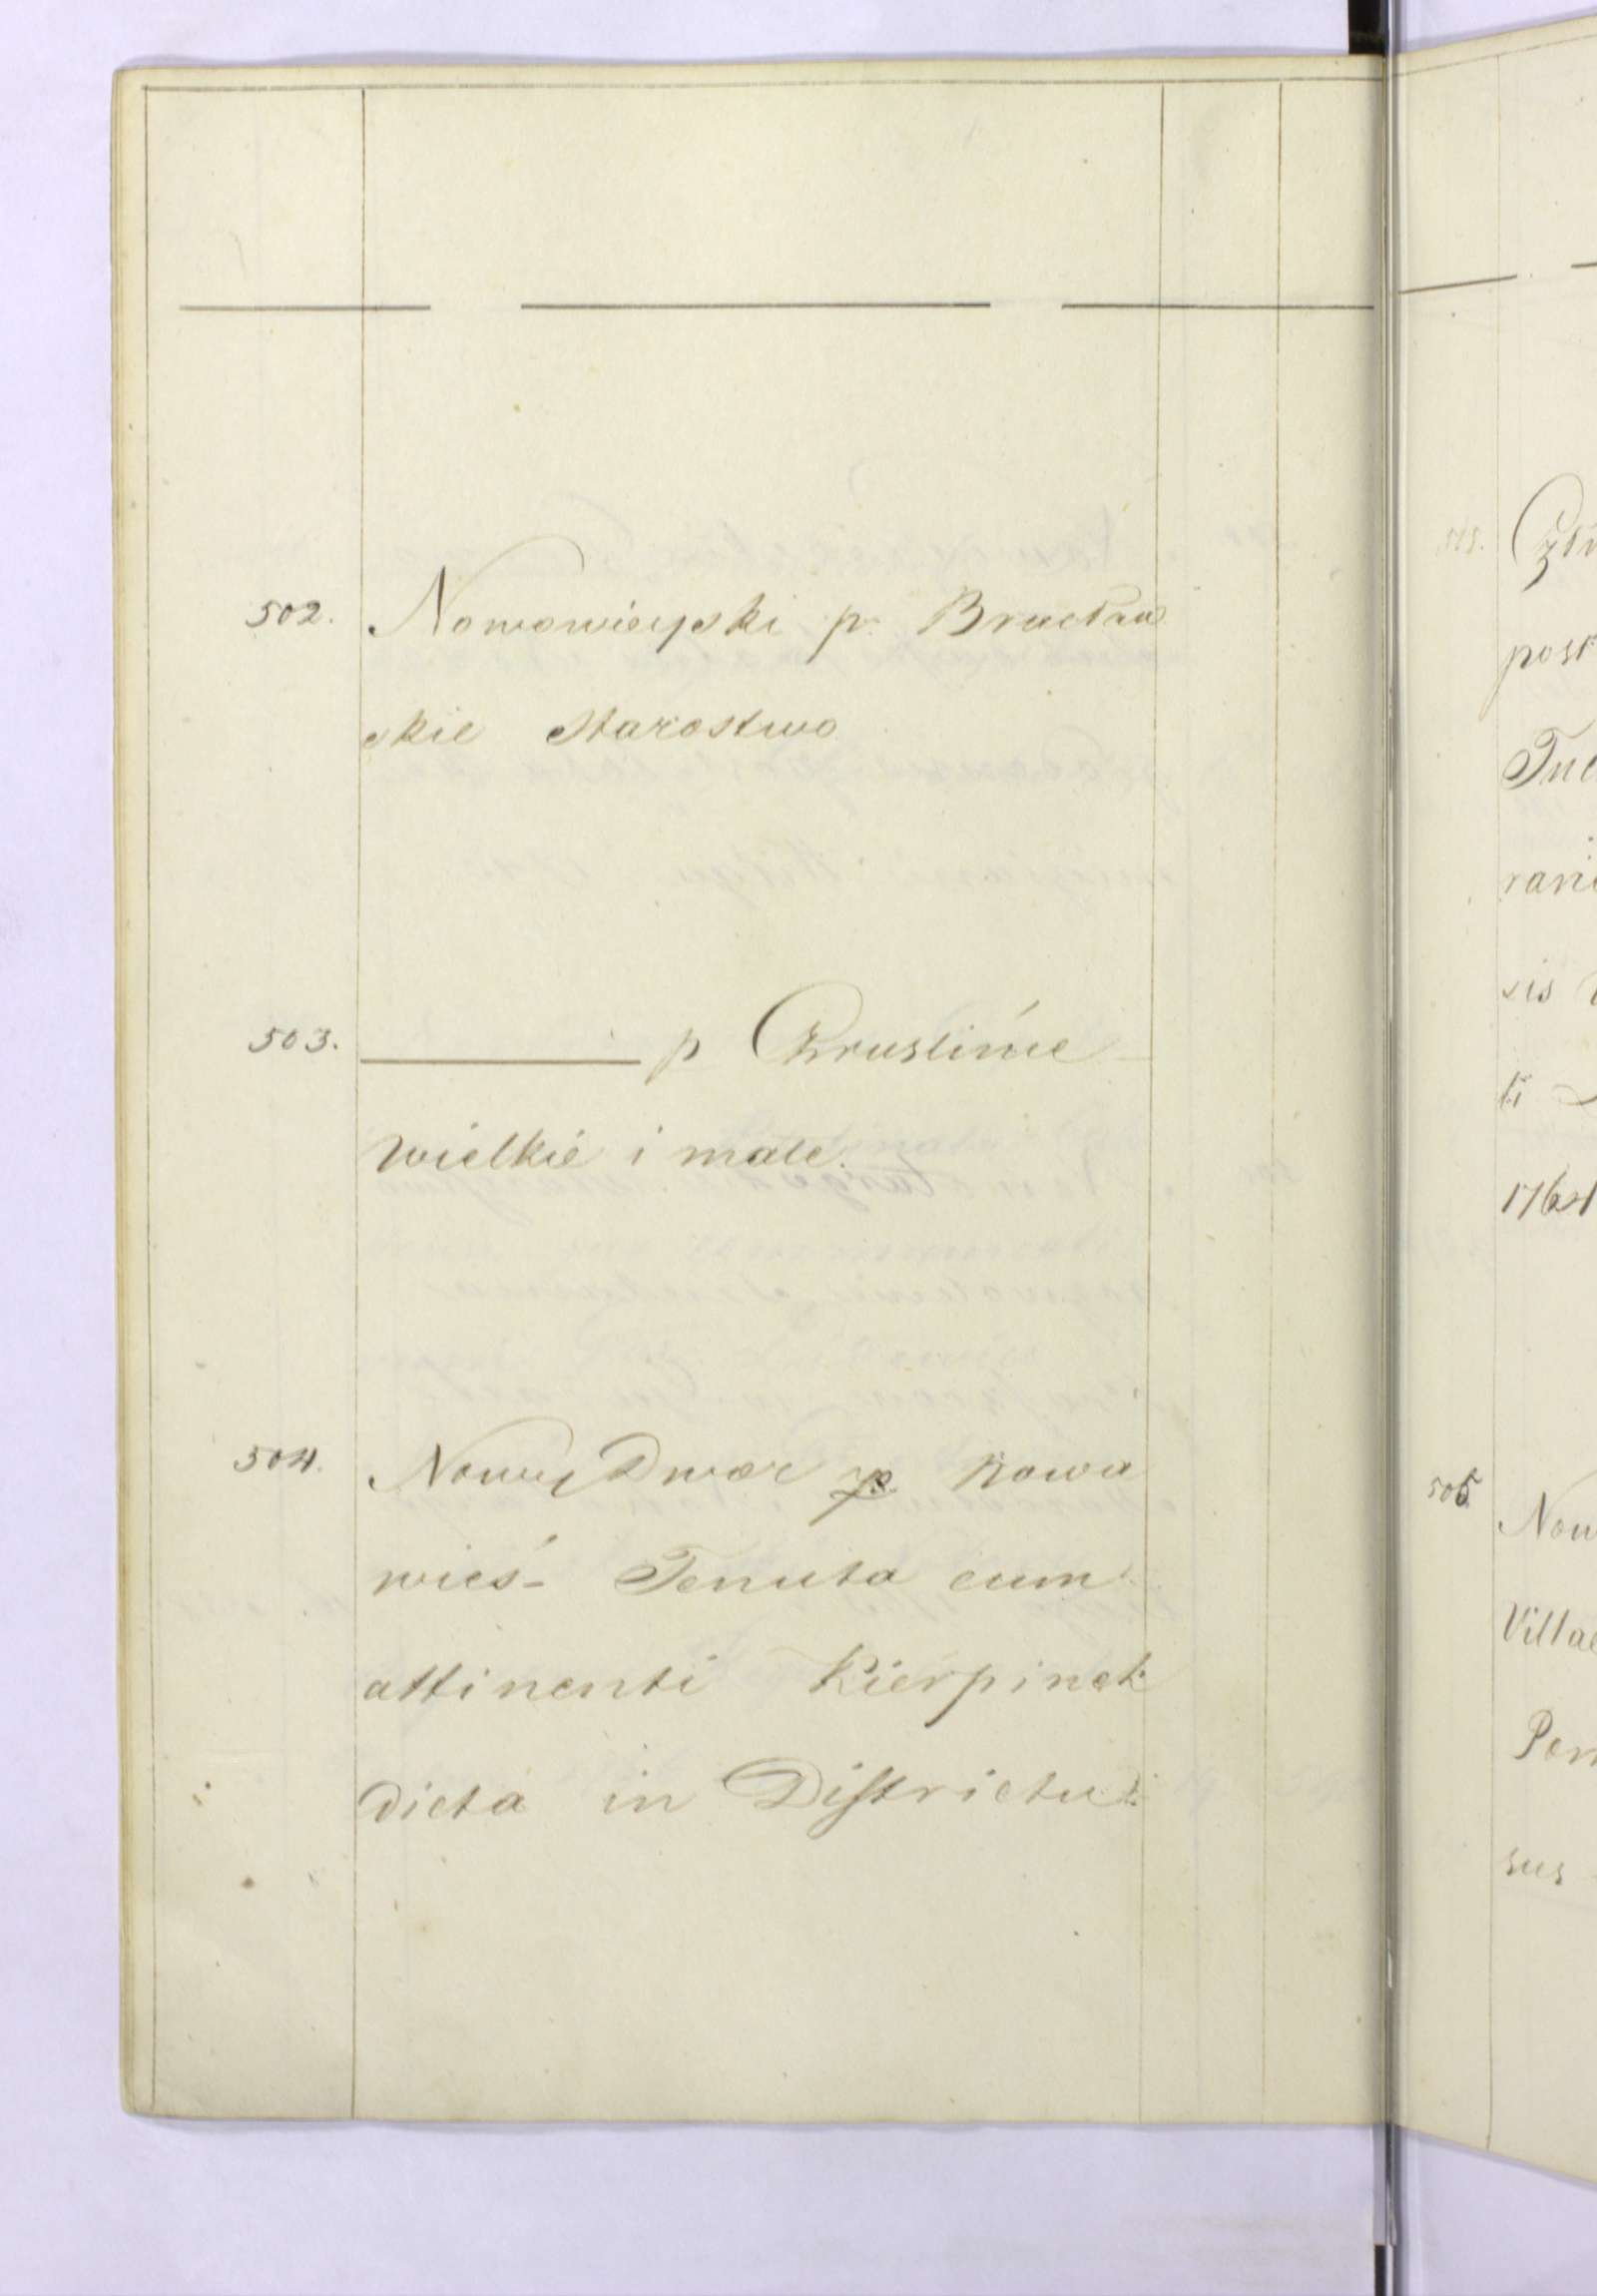 502. Nowowieyski p. Bracław
skie Starostwo
503. ——— p Chruslinie
wielkie i małe.
504. Nowy Dwor p. Nowa
wieś- Tenuta cum
attinenti Kierpinek
dicta in Districtu
post
1764
505. Now
Villae
Pom
sus